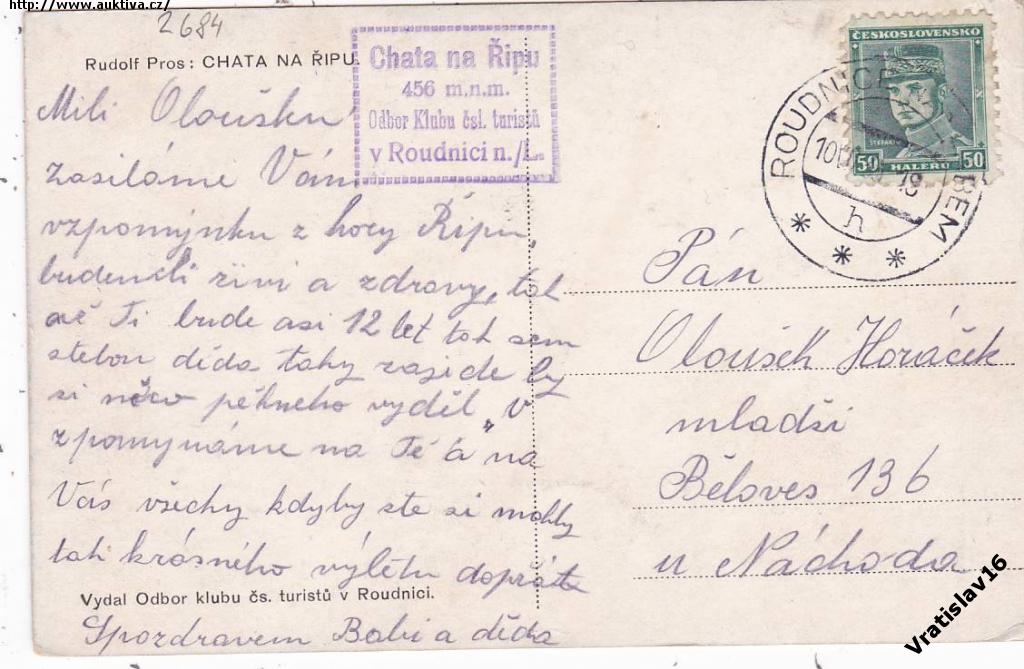 http://www.auktiva.cz/
2684
Rudolf Pros: CHATA NA ŘIPU.
Chata na Řípu
456 m.n.m.
Odbor Klubu čsl. turistů
v Roudnici n./L.
Mili Oloušku
zasiláme Vám
vzpomýnku z hory Řípu,
budemeli zivi a zdravy, tak
až Ti bude asi 12 let tak sem
stebou děda taky zajede by
si něco pěkneho vyděl, V
zpomynáme na Tě a na
Vás všechy kdyby ste si mohly
tak krásného výletu dopráte
Vydal Odbor klubu čs. turistů v Roudnici.
Spozdravem Babi a děda
ČESKOSLOVENSKO
ŠTEFÁNIK
50 HALÉŘŮ 50
ROUDNICE BEM
h
Pán
Oloušek Horáček
mladši
Běloves 136
u Náchoda
Vratislav16